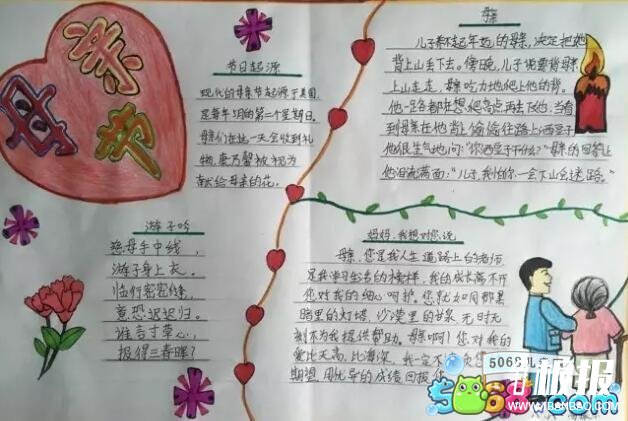 母亲节
节日起源
现代的母亲节起源于美国,
是每年5月的第二个星期日。
母亲们在这一天会收到礼
物,康乃馨被视为
献给母亲的花。
游子吟
慈母手中线,
游子身上衣。
临行密密缝,
意恐迟迟归。
谁言寸草心,
报得三春晖?
母亲
儿子
年迈的母亲,决定把她
背上山丢下去。傍晚,儿子说要背母亲
上山走走,母亲吃力地爬上他的背。
他一路都在想爬高点再丢下她,当看
到母亲在他背上偷偷往路上洒豆子
他很生气地问:“你洒豆子干什么?”母亲的回答让
他泪流满面:“儿子,我怕你一会下山会迷路。”
妈妈,我想对您说
母亲,您是我人生道路上的老师
是我学习生活的榜样,我的成长离不开
您对我的细心呵护。您就如同那黑
暗里的灯塔,沙漠里的甘泉,无时无
刻不为我提供帮助。母亲啊!您对我的
爱比天高,比海深。我一定不
期望,用优异的成绩回报
5068儿
板报
5068.com
WWW.1BANBAO.COM